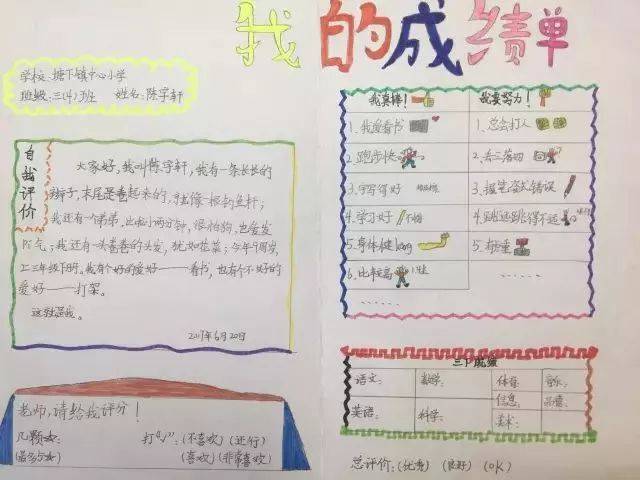 我的成绩单
学校:塘下镇中心小学
班级:三(4)班 姓名:陈宇轩
自我评价
大家好,我叫陈宇轩,我有一条长长的
辫子,末尾是卷起来的,就像一根钓鱼杆;
我还有一个弟弟,比我小两分钟,很怕狗,也爱发
脾气;我还有一头卷卷的头发,犹如花菜;今年9周岁,
上三年级下册。我有个好的爱好——看书,也有个不好的
爱好——打架。
这就是我。
2017年6月20日
老师,请给我评分!
几颗☆:
(最多5☆)
打“√”:(不喜欢)(还行)
(喜欢)(非常喜欢)
我真棒!
1.我爱看书
2.跑步快
3.字写得好
4.学习好 不错
5.身体健kang
6.比较高
……
我要努力!
1.总会打人
2.丢三落四
3.握笔姿势错误
4.跳远跳得不远
5.超重
……
三下成绩
语文: 数学: 体育: 音乐:
信息: 品德:
英语: 科学: 美术:
总评价:(优秀) (良好) (OK)